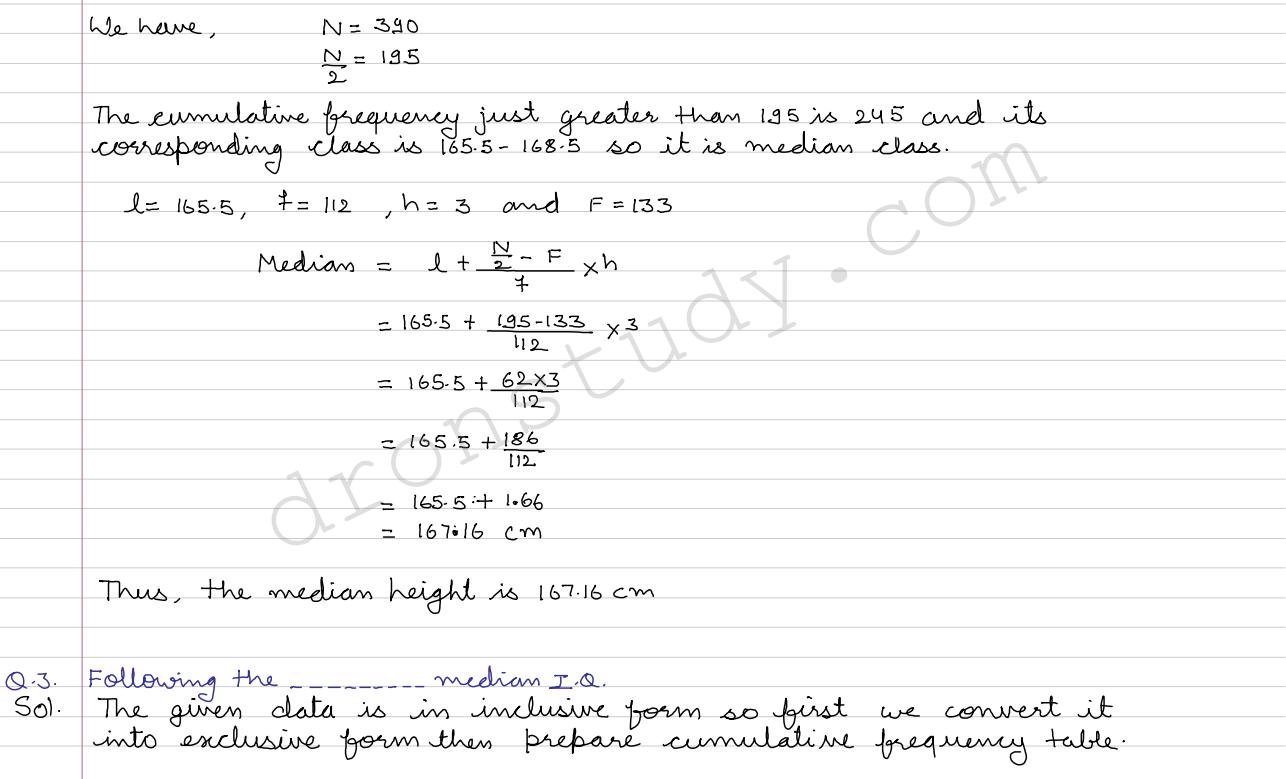 We have, N = 390
N/2 = 195
The cumulative frequency just greater than 195 is 245 and its
corresponding class is 165.5 - 168.5 so it is median class.
l = 165.5, f = 112 , h = 3 and F = 133
Median = l + (N/2 - F)/f × h
= 165.5 + (195-133)/112 × 3
= 165.5 + (62×3)/112
= 165.5 + 186/112
= 165.5 + 1.66
= 167.16 cm
Thus, the median height is 167.16 cm
Q.3. Following the --------- median I.Q.
Sol. The given data is in inclusive form so first we convert it
into exclusive form then prepare cumulative frequency table.
dronstudy.com